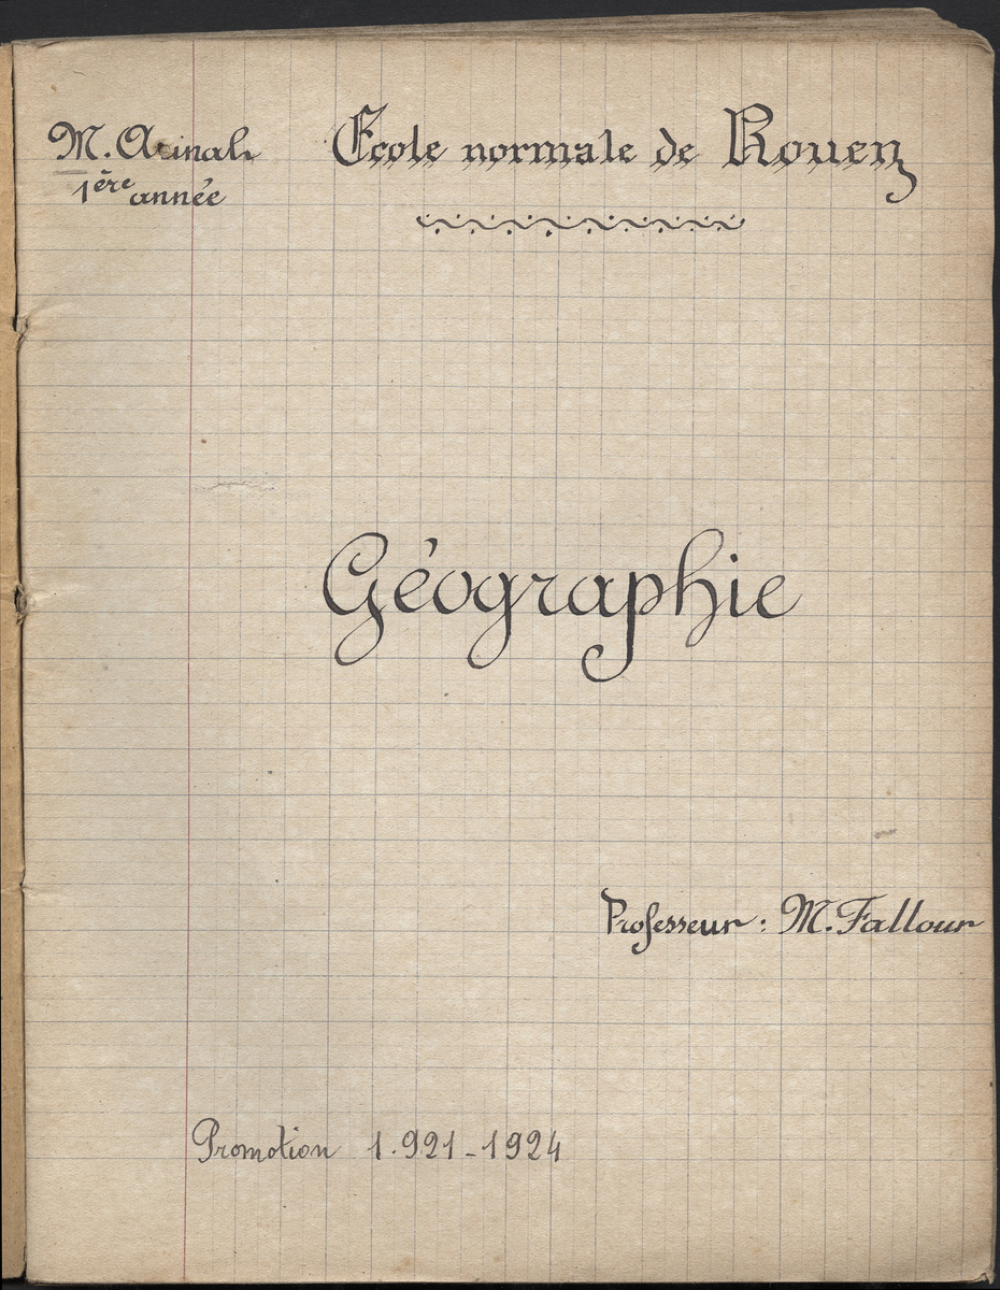 M. Acinal
École normale de Rouen
1ère année
Géographie
Professeur : M. Fallour
Promotion 1.921-1924